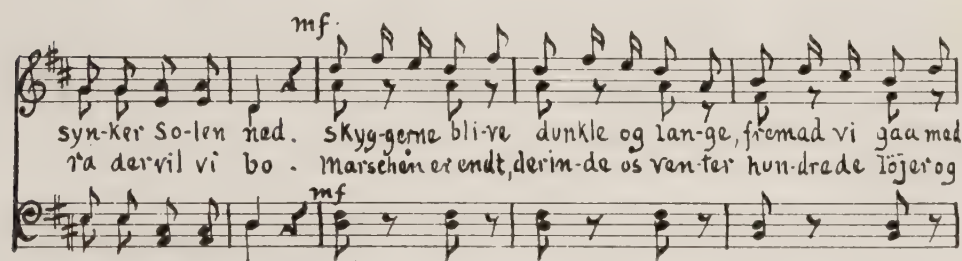 mf.
syn-ker So-len ned. skyg-gerne bli-ve dunkle og lan-ge, fremad vi gaa med
ra dervil vi bo. Marschen er endt, derin-de os ven-ter hun-drade löjer og
mf